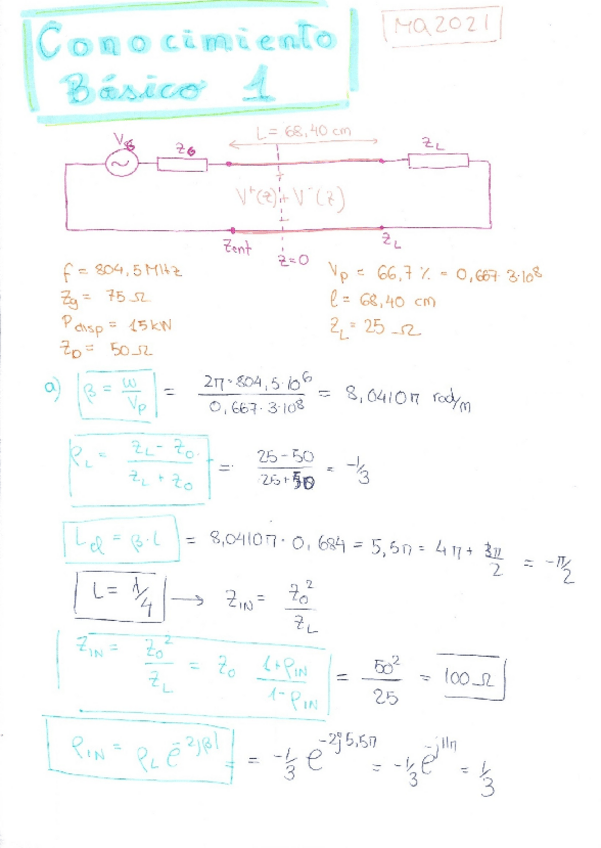 Conocimiento
Básico 1
MA2021
Vg
ZG
L = 68,40 cm
ZL
V⁺(z) + V⁻(z)
Zent
z=0
ZL
f = 804,5 MHz
Zg = 75 Ω
Pdisp = 15 kW
Z0 = 50 Ω
Vp = 66,7 % = 0,667·3·10⁸
l = 68,40 cm
ZL = 25 Ω
a) β = ω/Vp = 2π·804,5·10⁶ / 0,667·3·10⁸ = 8,0410π rad/m
ρL = ZL - Z0 / ZL + Z0 = 25-50 / 25+50 = -1/3
Lel = β·l = 8,0410π · 0,684 = 5,5π = 4π + 3π/2 = -π/2
L = λ/4 → ZIN = Z0² / ZL
ZIN = Z0² / ZL = Z0 1+ρIN / 1-ρIN = 50² / 25 = 100 Ω
ρIN = ρL e^-2jβl = -1/3 e^-2j5,5π = -1/3 e^-j11π = 1/3